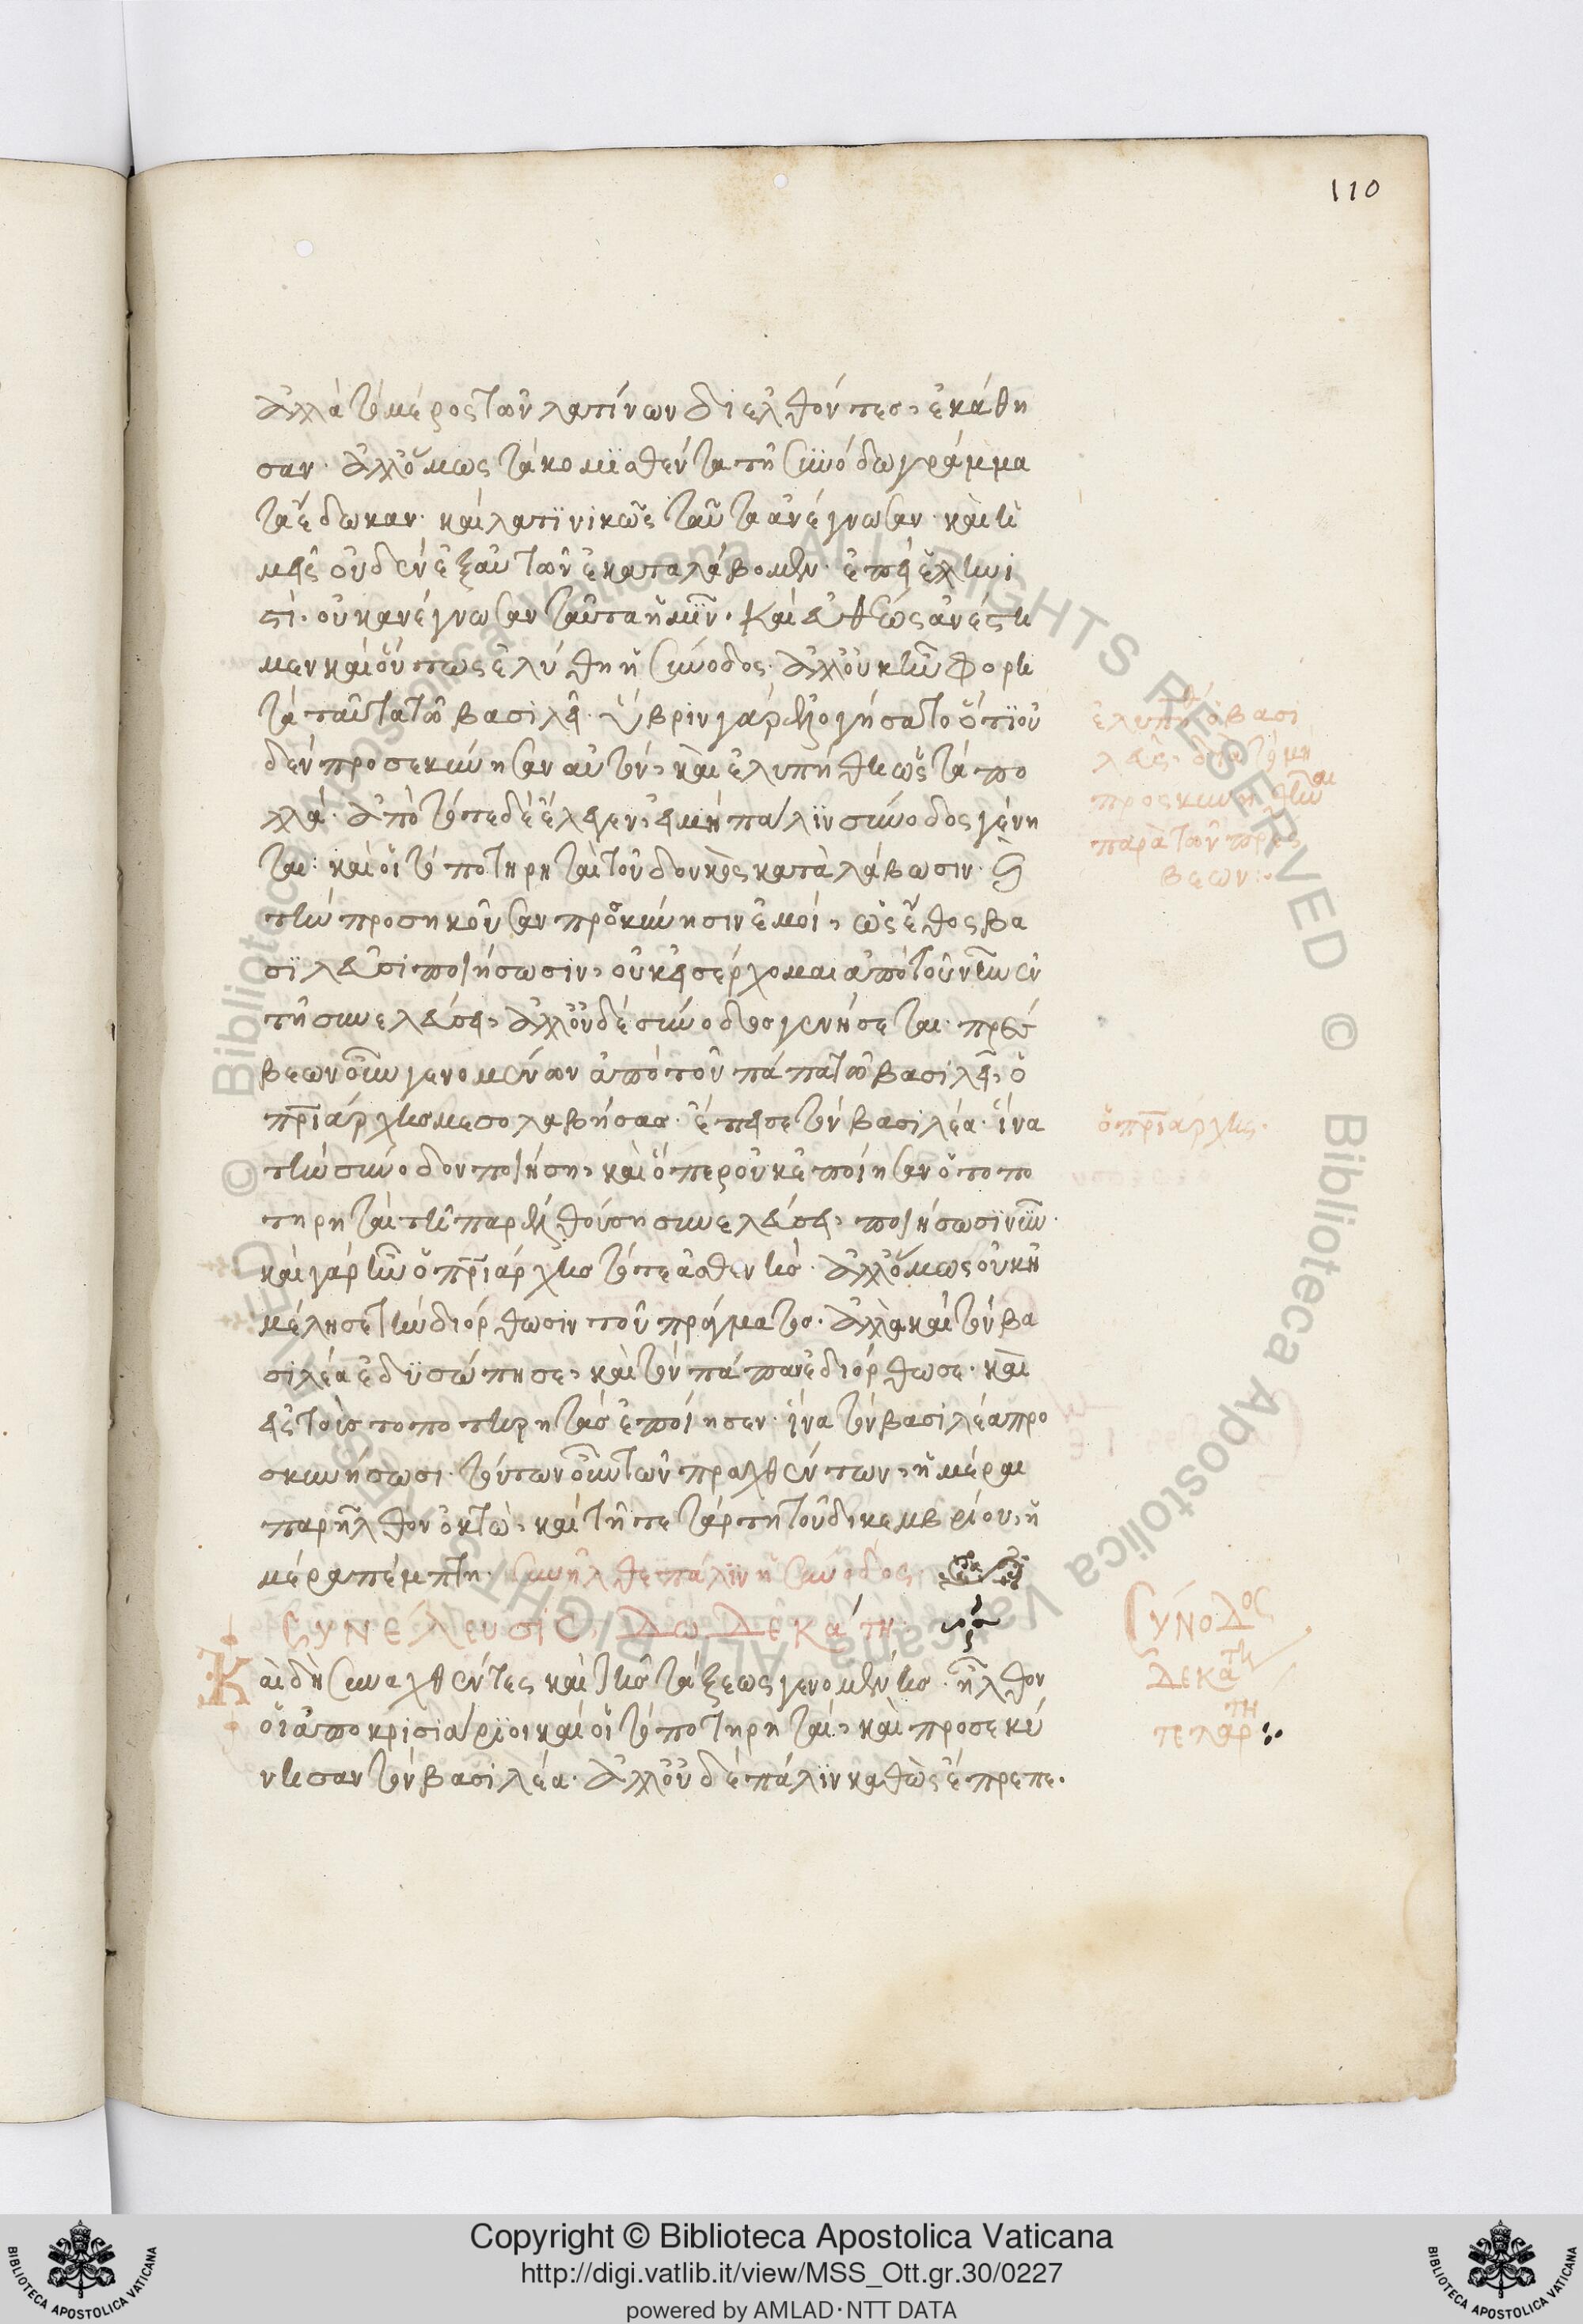 110
ἀλλὰ τὸ μέρος τῶν λατίνων διελθόντες, ἐκάθη
σαν· ἀλλ' ὅμως τὰ κομϊσθέντα τῆ συνόδω γράμμα
τα ἔδωκαν· καὶ λατϊνικῶς ταῦτα ἀνέγνωσαν· καὶ ἡ
μεῖς οὐδὲν ἐξ αὐτῶν ἐκαταλάβομεν· ἐπεὶ ἑλληνι
στὶ οὐκ ἀνέγνωσαν ταῦτα ἡμῖν. καὶ εὐθέως ἀνέστη
μεν καὶ οὕτως ἐλύθη ἡ σύνοδος· ἀλλ' οὐκ ἦν φορη
τὰ ταῦτα τῶ βασιλεῖ· ὕβριν γὰρ ἐλογήσατο ὅτϊ οὐ
δὲν προσεκύνησαν αὐτὸν, καὶ ἐλυπήθη ὡς τὰ πο
λλά· ἀπὸ τότε δὲ ἔλεγεν, εἰ μὴ πάλϊν σύνοδος γένη
ται· καὶ οἱ τοποτηρηταὶ τοῦ δουκὸς καταλάβωσιν·
τὴν προσήκουσαν προσκύνησιν ἐμοὶ, ὡς ἔθος βα
σϊλεῦσι ποιήσωσιν, οὐκ εἰσέρχομαι ἀπὸ τοῦ νῦν ἐν
τῆ συνελεύσει, ἀλλ' οὐδὲ σύνοδος γενήσεται· πρέσ
βεων οὖν γενομένων ἀπὸ τοῦ πάπα τῶ βασιλεῖ, ὁ
πριάρχης μεσολαβήσας· ἔπεισε τὸν βασιλέα· ἵνα
τὴν σύνοδον ποιήση, καὶ ὅπερ οὐκ ἐποίησαν οἱ τοπο
τηρηταὶ τῆ παρελθούση συνελεύσει, ποιήσωσϊ νῦν·
καὶ γὰρ ἦν ὁ πριάρχης τότε ἀσθενὴς· ἀλλ' ὅμως οὐκ ἠ
μέλησε τὴν διόρθωσιν τοῦ πράγματος· ἀλλὰ καὶ τὸν βα
σιλέα ἐδϋσώπησε, καὶ τὸν πάπαν ἐδιόρθωσε· καὶ
εἰς τοὺς τοποτηρητὰς ἐποίησεν· ἵνα τὸν βασιλέα προ
σκυνήσωσι· τούτων οὖν τῶν πραχθέντων, ἡμέραι
παρῆλθον ὀκτὼ, καὶ τῆ τετάρτη τοῦ δικεμβρίου, ἡ
μέρα πέμπτη· συνῆλθε πάλϊν ἡ σύνοδος·
ΣΥΝέλευσις, Δωδεκάτη·
Καὶ δὴ συναχθέντες καὶ τῆς τάξεως γενομένης· ἦλθον
οἱ ἀποκρισιάρϊοι καὶ οἱ τοποτηρηταὶ, καὶ προσεκύ
νησαν τὸν βασιλέα· ἀλλ' οὐδὲ πάλϊν καθὼς ἔπρεπε.
ἐλυπήθη ὁ βασι
λεὺς, διὰ τὸ μὴ
προσκυνηθῆναι
παρὰ τῶν πρεσ
βεων:
ὁ πριάρχης.
Σύνοδος
δεκάτη
τετάρτη
Copyright © Biblioteca Apostolica Vaticana
http://digi.vatlib.it/view/MSS_Ott.gr.30/0227
powered by AMLAD·NTT DATA
BIBLIOTECA APOSTOLICA VATICANA
BIBLIOTECA APOSTOLICA VATICANA